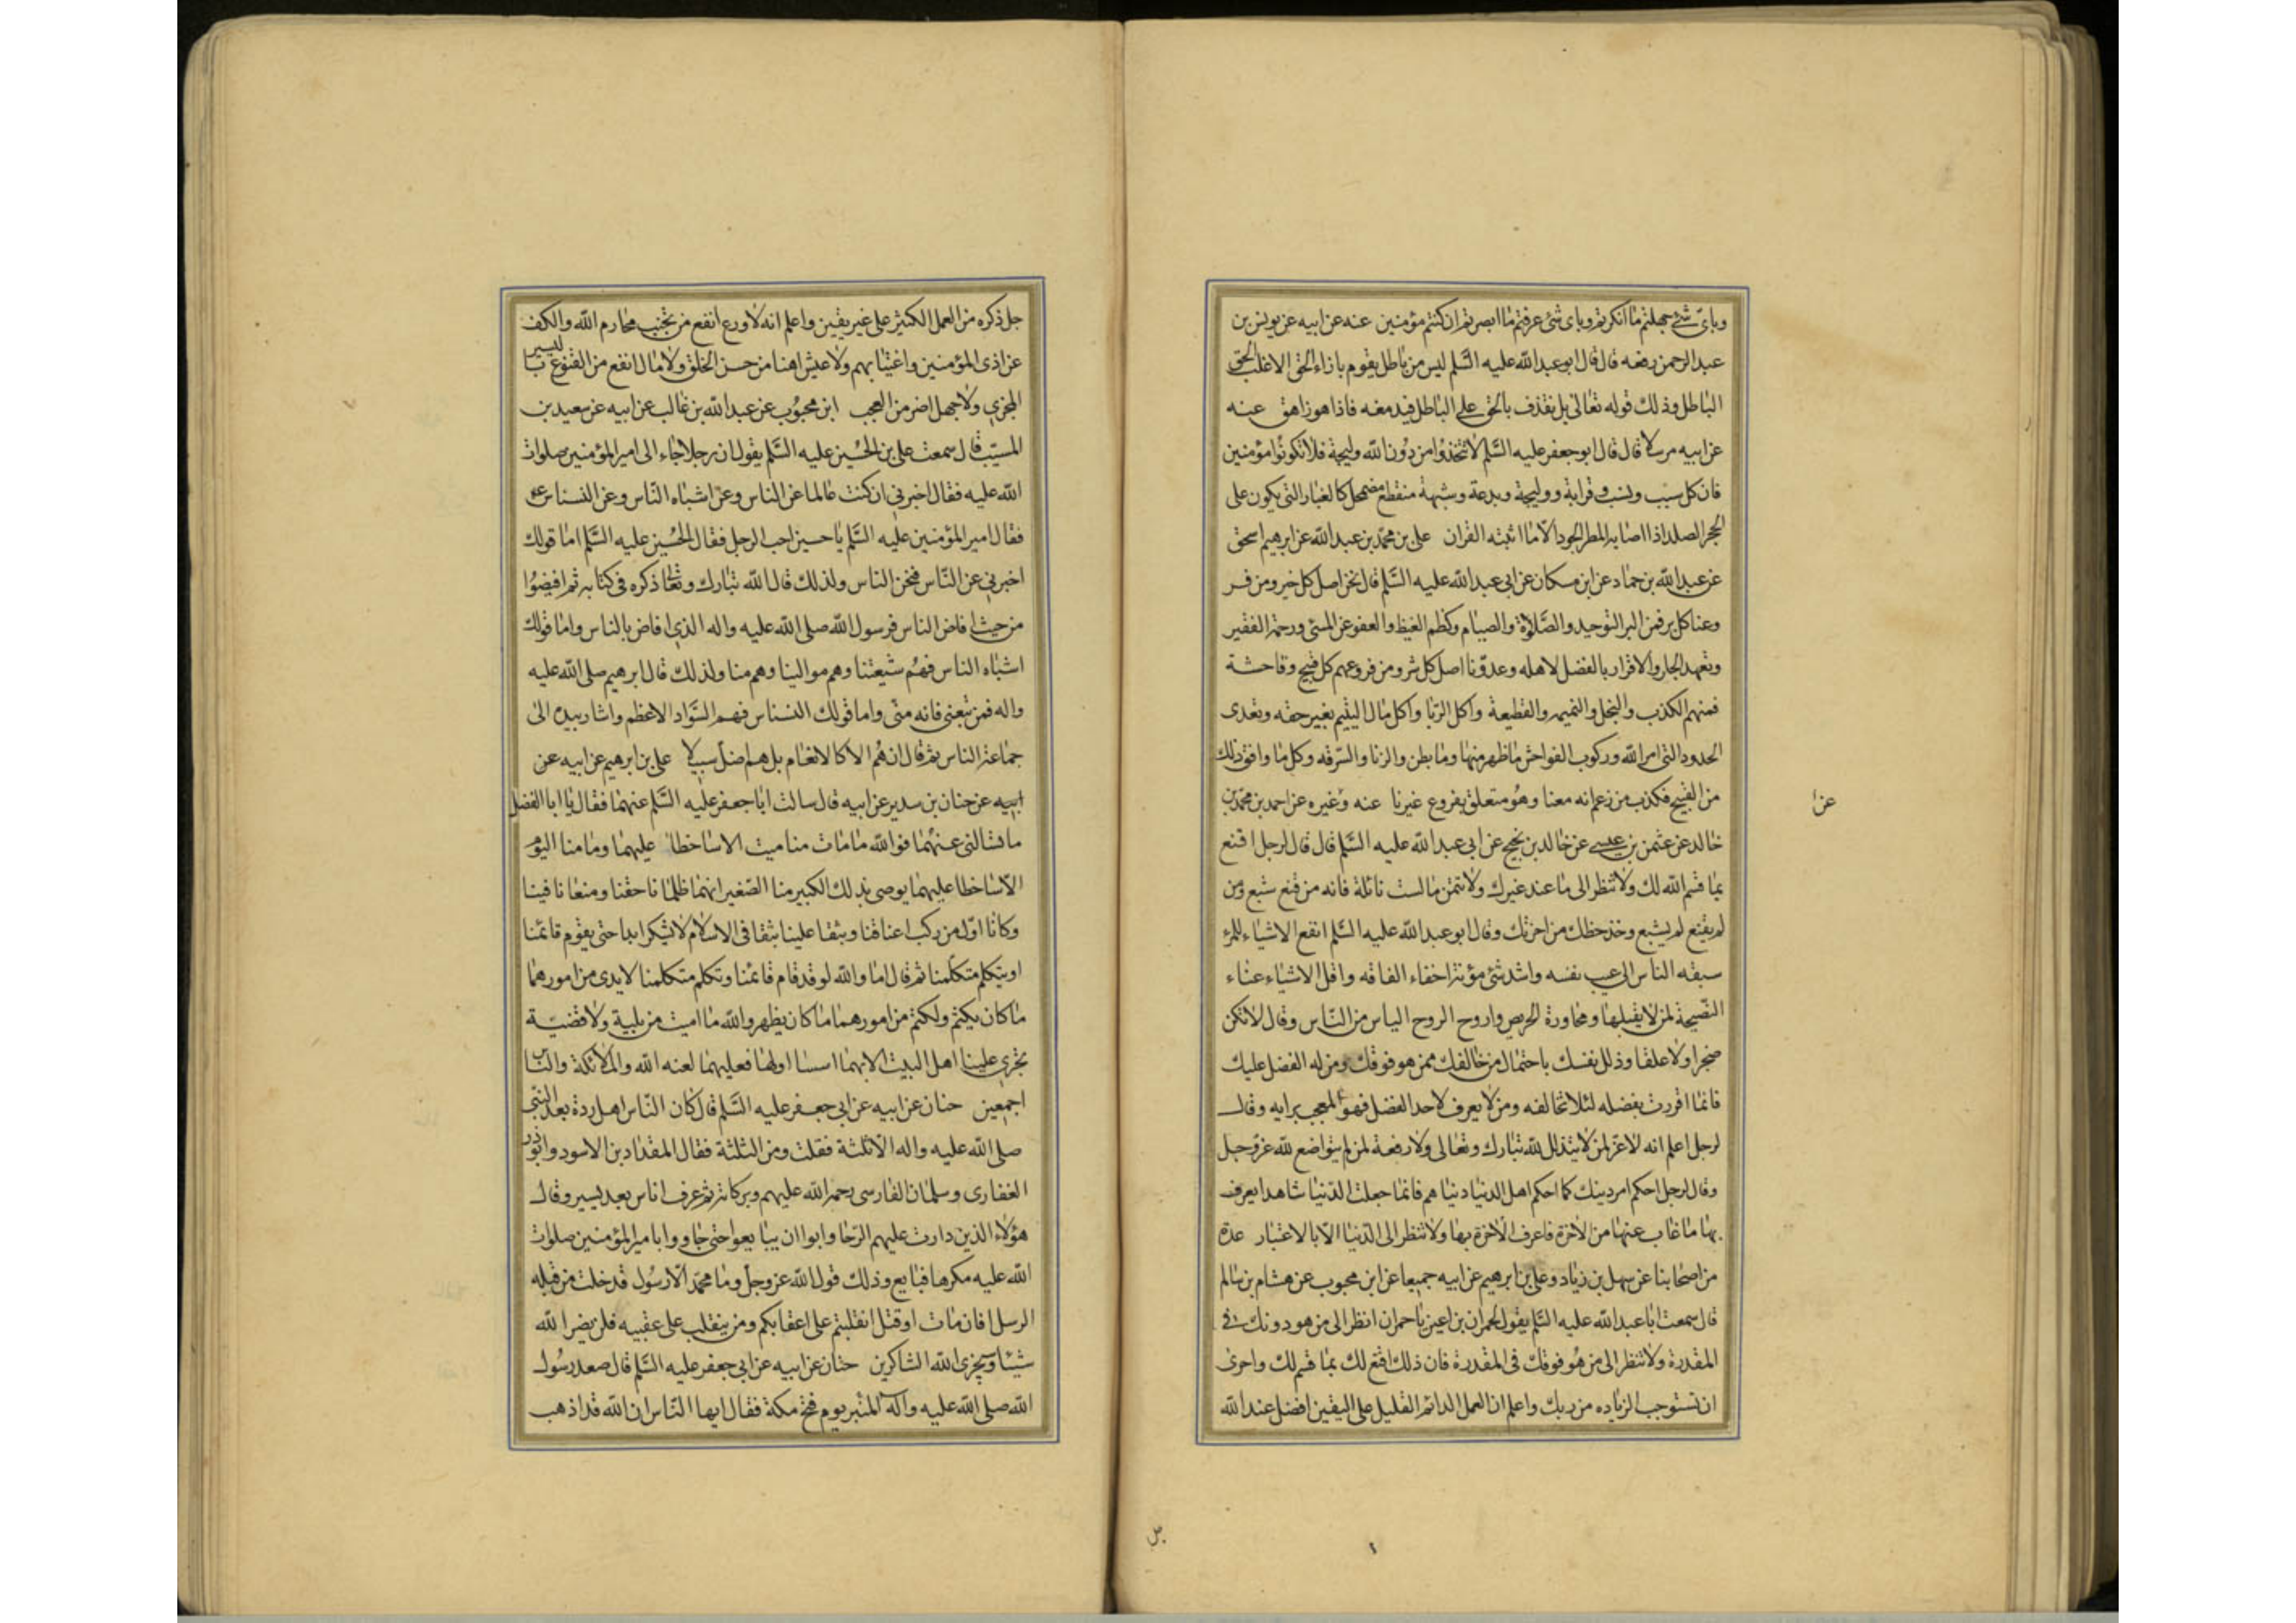 وباى شئ جهلتم ما انكرتم وباى شئ عرفتم ما ابصرتم ان كنتم مؤمنين عنه عن ابيه عن يونس بن
عبد الرحمن رفعه قال قال ابو عبد الله عليه السّلم ليس من باطل يقوم بازاء الحق الا غلب الحق
الباطل وذلك قوله تعالى بل نقذف بالحق على الباطل فيدمغه فاذا هو زاهق عنه
عن ابيه مرسلا قال قال ابو جعفر عليه السّلم لا تتخذوا من دون الله وليجة فلا تكونوا مؤمنين
فان كل سبب ونسب وقرابة ووليجة وبدعة وشبهة منقطع مضمحل كالغبار التى يكون على
الحجر الصلد اذا اصابه المطر الجود الا ما اثبته القران على بن محمّد بن عبد الله عن ابرهيم اسحق
عن عبد الله بن حماد عن ابن مسكان عن ابى عبد الله عليه السّلم قال نحن اصل كل خير ومن فر
وعنا كل بر فمن البر التوحيد والصّلاوة والصيام وكظم الغيظ والعفو عن المسئ ورحمة الفقير
وتعهد الجار والاقرار بالفضل لاهله وعدوّنا اصل كل شر ومن فروعهم كل قبيح وفاحشة
فمنهم الكذب والبخل والنميمه والقطيعة واكل الرّبا واكل مال اليتيم بغير حقه وتعدى
الحدود التى امر الله وركوب الفواحش ما ظهر منها وما بطن والزنا والسّرقه وكل ما وافق ذلك
من القبيح فكذب من زعم انه معنا وهو متعلق بفروع غيرنا عنه وغيره عن احمد بن محمّد بن
عن ا
خالد عن عثمن بن عيسى عن خالد بن نجيح عن ابى عبد الله عليه السّلم قال قال لرجل اقنع
بما قسم الله لك ولا تنظر الى ما عند غيرك ولا تتمن ما لست نائلة فانه من قنع شبع ومن
لم يقنع لم يشبع وخذ حظك من اخرتك وقال ابو عبد الله عليه السّلم انفع الاشياء للمرء
سبقه الناس الى عيب نفسه واشد شئ مؤنة اخفاء الفاقه واقل الاشياء عناء
النّصيحة لمن لا يقبلها ومجاورة الحريص واروح الروح الياس من النّاس وقال لا تكن
ضجرا ولا علقا وذلل نفسك باحتمال من خالفك ممن هو فوقك ومن له الفضل عليك
فانما اقررت بفضله لئلا تخالفه ومن لا يعرف لاحد الفضل فهو المعجب برايه وقال
لرجل اعلم انه لا عز لمن لا يتذلل لله تبارك وتعالى ولا رفعة لمن لم يتواضع لله عز وجل
وقال لرجل احكم امر دينك كما احكم اهل الدنيا دنياهم فانما جعلت الدّنيا شاهدا يعرف
بها ما غاب عنها من الاخرة فاعرف الاخرة بها ولا تنظر الى الدّنيا الّا بالاعتبار عدة
من اصحابنا عن سهل بن زياد وعلى بن ابرهيم عن ابيه جميعا عن ابن محبوب عن هشام بن سالم
قال سمعت ابا عبد الله عليه السّلم يقول لحمران بن اعين يا حمران انظر الى من هو دونك فى
المقدرة ولا تنظر الى من هو فوقك فى المقدرة فان ذلك اقنع لك بما قسم لك واحرى
ان تستوجب الزياده من ربك واعلم ان العمل الدائم القليل على اليقين افضل عند الله
جل
جل ذكره من العمل الكثير على غير يقين واعلم انه لا ورع انفع من تجنب محارم الله والكف
عن اذى المؤمنين واغتيابهم ولا عيش اهنا من حسن الخلق ولا مال انفع من القنوع باليسير
المجزى ولا جهل اضر من العجب ابن محبوب عن عبد الله بن غالب عن ابيه عن سعيد بن
المسيّب قال سمعت على بن الحسين عليه السّلم يقول ان رجلا جاء الى امير المؤمنين صلوات
الله عليه فقال اخبرنى ان كنت عالما عن الناس وعن اشباه النّاس وعن النسناس
فقال امير المؤمنين عليه السّلم يا حسين اجب الرجل فقال الحسين عليه السّلم اما قولك
اخبرنى عن النّاس فنحن الناس ولذلك قال الله تبارك وتعالى ذكره فى كتابه ثم افيضوا
من حيث افاض الناس فرسول الله صلى الله عليه واله الذى افاض بالناس واما قولك
اشباه الناس فهم شيعتنا وهم موالينا وهم منا ولذلك قال ابرهيم صلى الله عليه
واله فمن تبعنى فانه منّى واما قولك النسناس فهم السّواد الاعظم واشار بيده الى
جماعة الناس ثم قال ان هم الا كالانعام بل هم اضل سبيلا على بن ابرهيم عن ابيه عن
ابيه عن حنان بن سدير عن ابيه قال سالت ابا جعفر عليه السّلم عنهما فقال يا ابا الفضل
ما تسالنى عنهما فوالله ما مات منا ميت الا ساخطا عليهما وما منا اليوم
الّا ساخطا عليهما يوصى بذلك الكبير منا الصّغير انهما ظلمانا حقنا ومنعانا فينا
وكانا اوّل من ركب اعناقنا وبثقا علينا بثقا فى الاسلام لا تسكر ابدا حتى يقوم قائمنا
او يتكلم متكلّمنا ثم قال اما والله لو قد قام قائمنا وتكلم متكلمنا لابدى من امورهما
ما كان يكتم ولكتم من امورهما ما كان يظهر والله ما امست من بلية ولا قضيّة
تجرى علينا اهل البيت الا بهما اسسا اولها فعليهما لعنه الله والملائكة والنّاس
اجمعين حنان عن ابيه عن ابى جعفر عليه السّلم قال كان النّاس اهل ردة بعد النّبى
صلى الله عليه واله الّا ثلثة فقلت ومن الثلثة فقال المقداد بن الاسود وابو ذر
الغفارى وسلمان الفارسى رحمة الله عليهم وبركاته ثم عرف اناس بعد يسير وقال
هؤلاء الذين دارت عليهم الرّحا وابوا ان يبايعوا حتى جاووا بامير المؤمنين صلوات
الله عليه مكرها فبايع وذلك قول الله عز وجل وما محمّد الّا رسول قد خلت من قبله
الرسل افان مات او قتل انقلبتم على اعقابكم ومن ينقلب على عقبيه فلن يضر الله
شيئا وسيجزى الله الشاكرين حنان عن ابيه عن ابى جعفر عليه السّلم قال صعد رسول
الله صلى الله عليه واله المنبر يوم فتح مكة فقال ايها النّاس ان الله قد اذهب